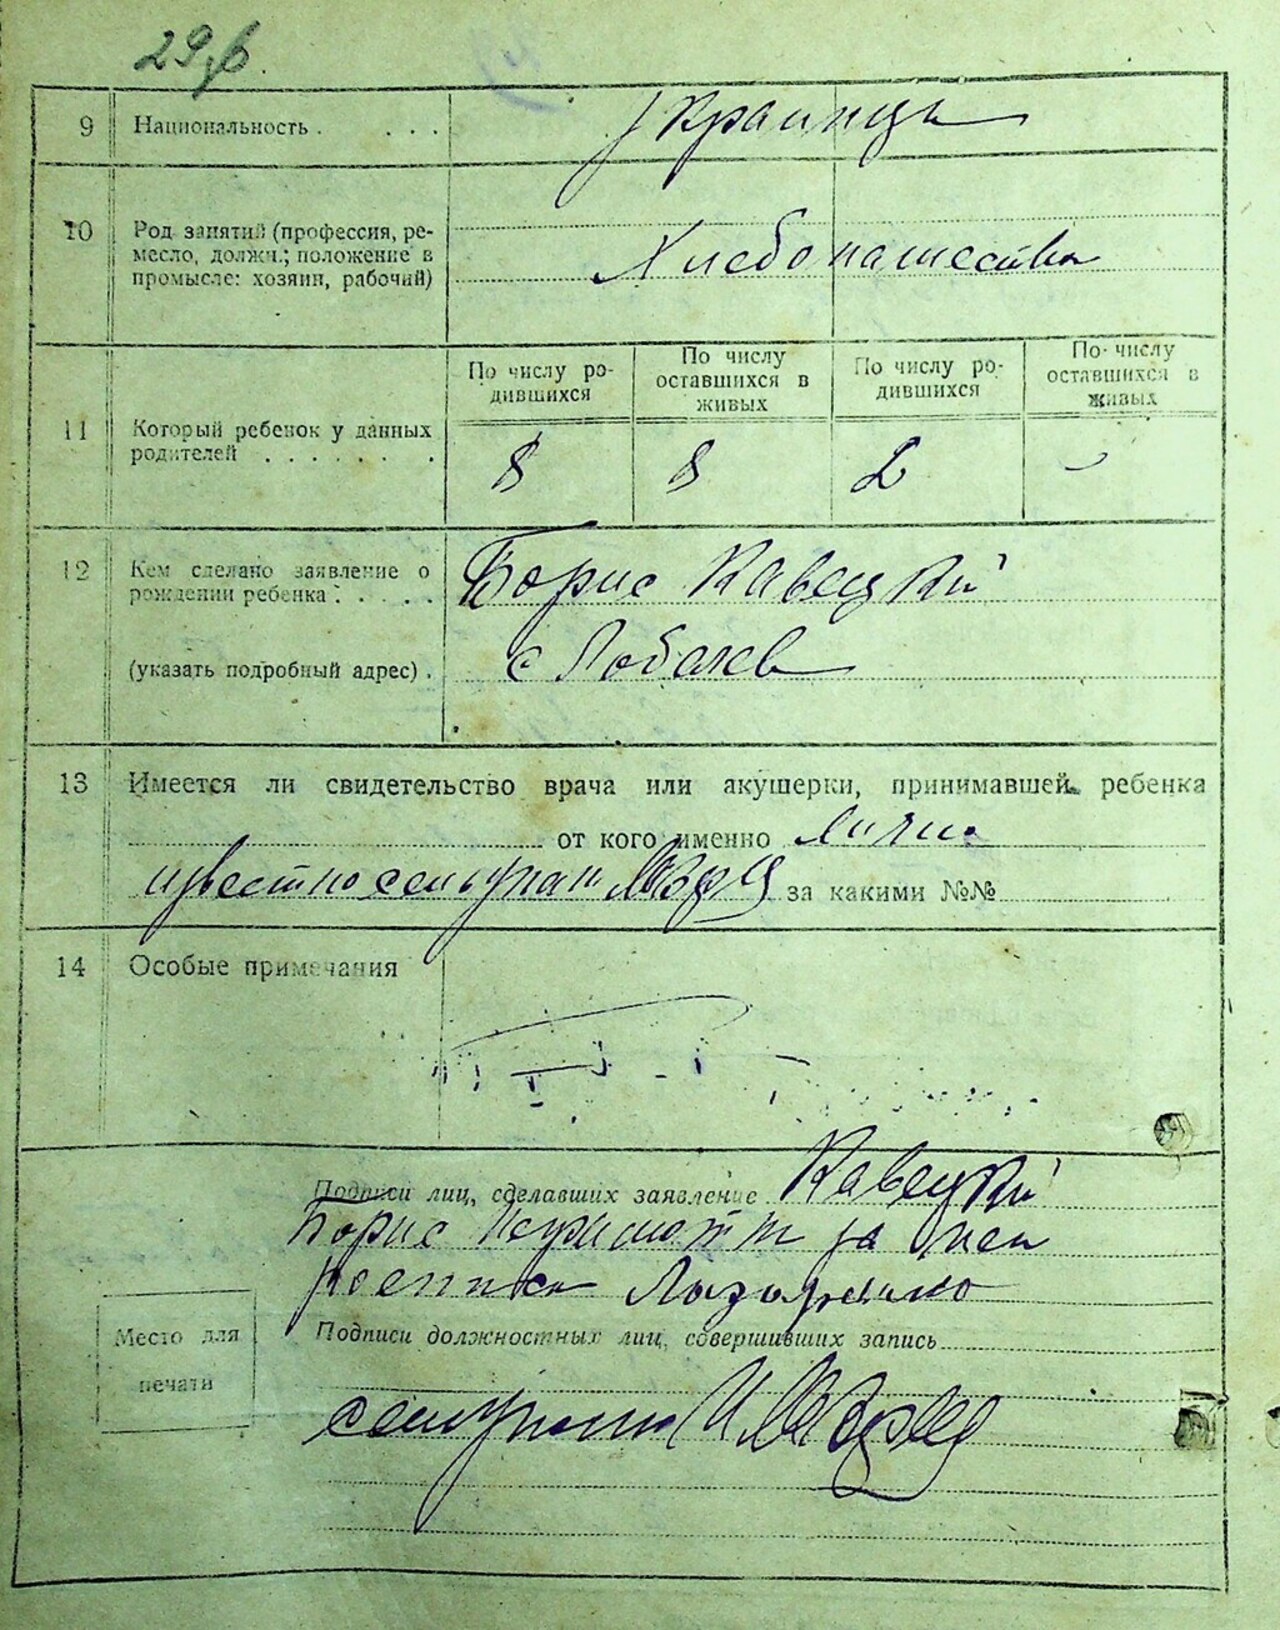 29
9 Национальность . . . . Украинцы
10 Род занятий (профессия, ре-
месло, должн.; положение в
промысле: хозяин, рабочий)
Хлебопашество
По числу ро-
дившихся
По числу
оставшихся в
живых
По числу ро-
дившихся
По числу
оставшихся в
живых
11 Который ребенок у данных
родителей . . . . . . .
8 8 2 –
12 Кем сделано заявление о
рождении ребенка . . . . .
Борис Кавецкий
(указать подробный адрес) .
с
13 Имеется ли свидетельство врача или акушерки, принимавшей ребенка
от кого именно Лично
известно за какими №№
14 Особые примечания
Подписи лиц, сделавших заявление Кавецкий
Борис за
Подписи должностных лиц, совершивших запись
Место для
печати